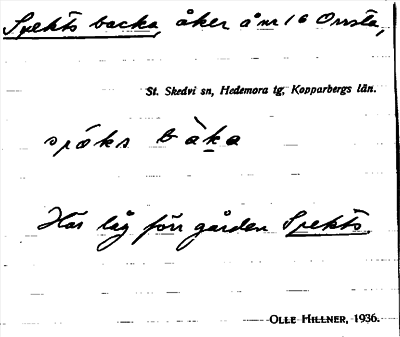 Spekts backa, åker å nr 16 Onsta,
St. Skedvi sn, Hedemora tg, Kopparbergs län.
späks bàka
Här låg förr gården Spekts.
OLLE HILLNER, 1936.